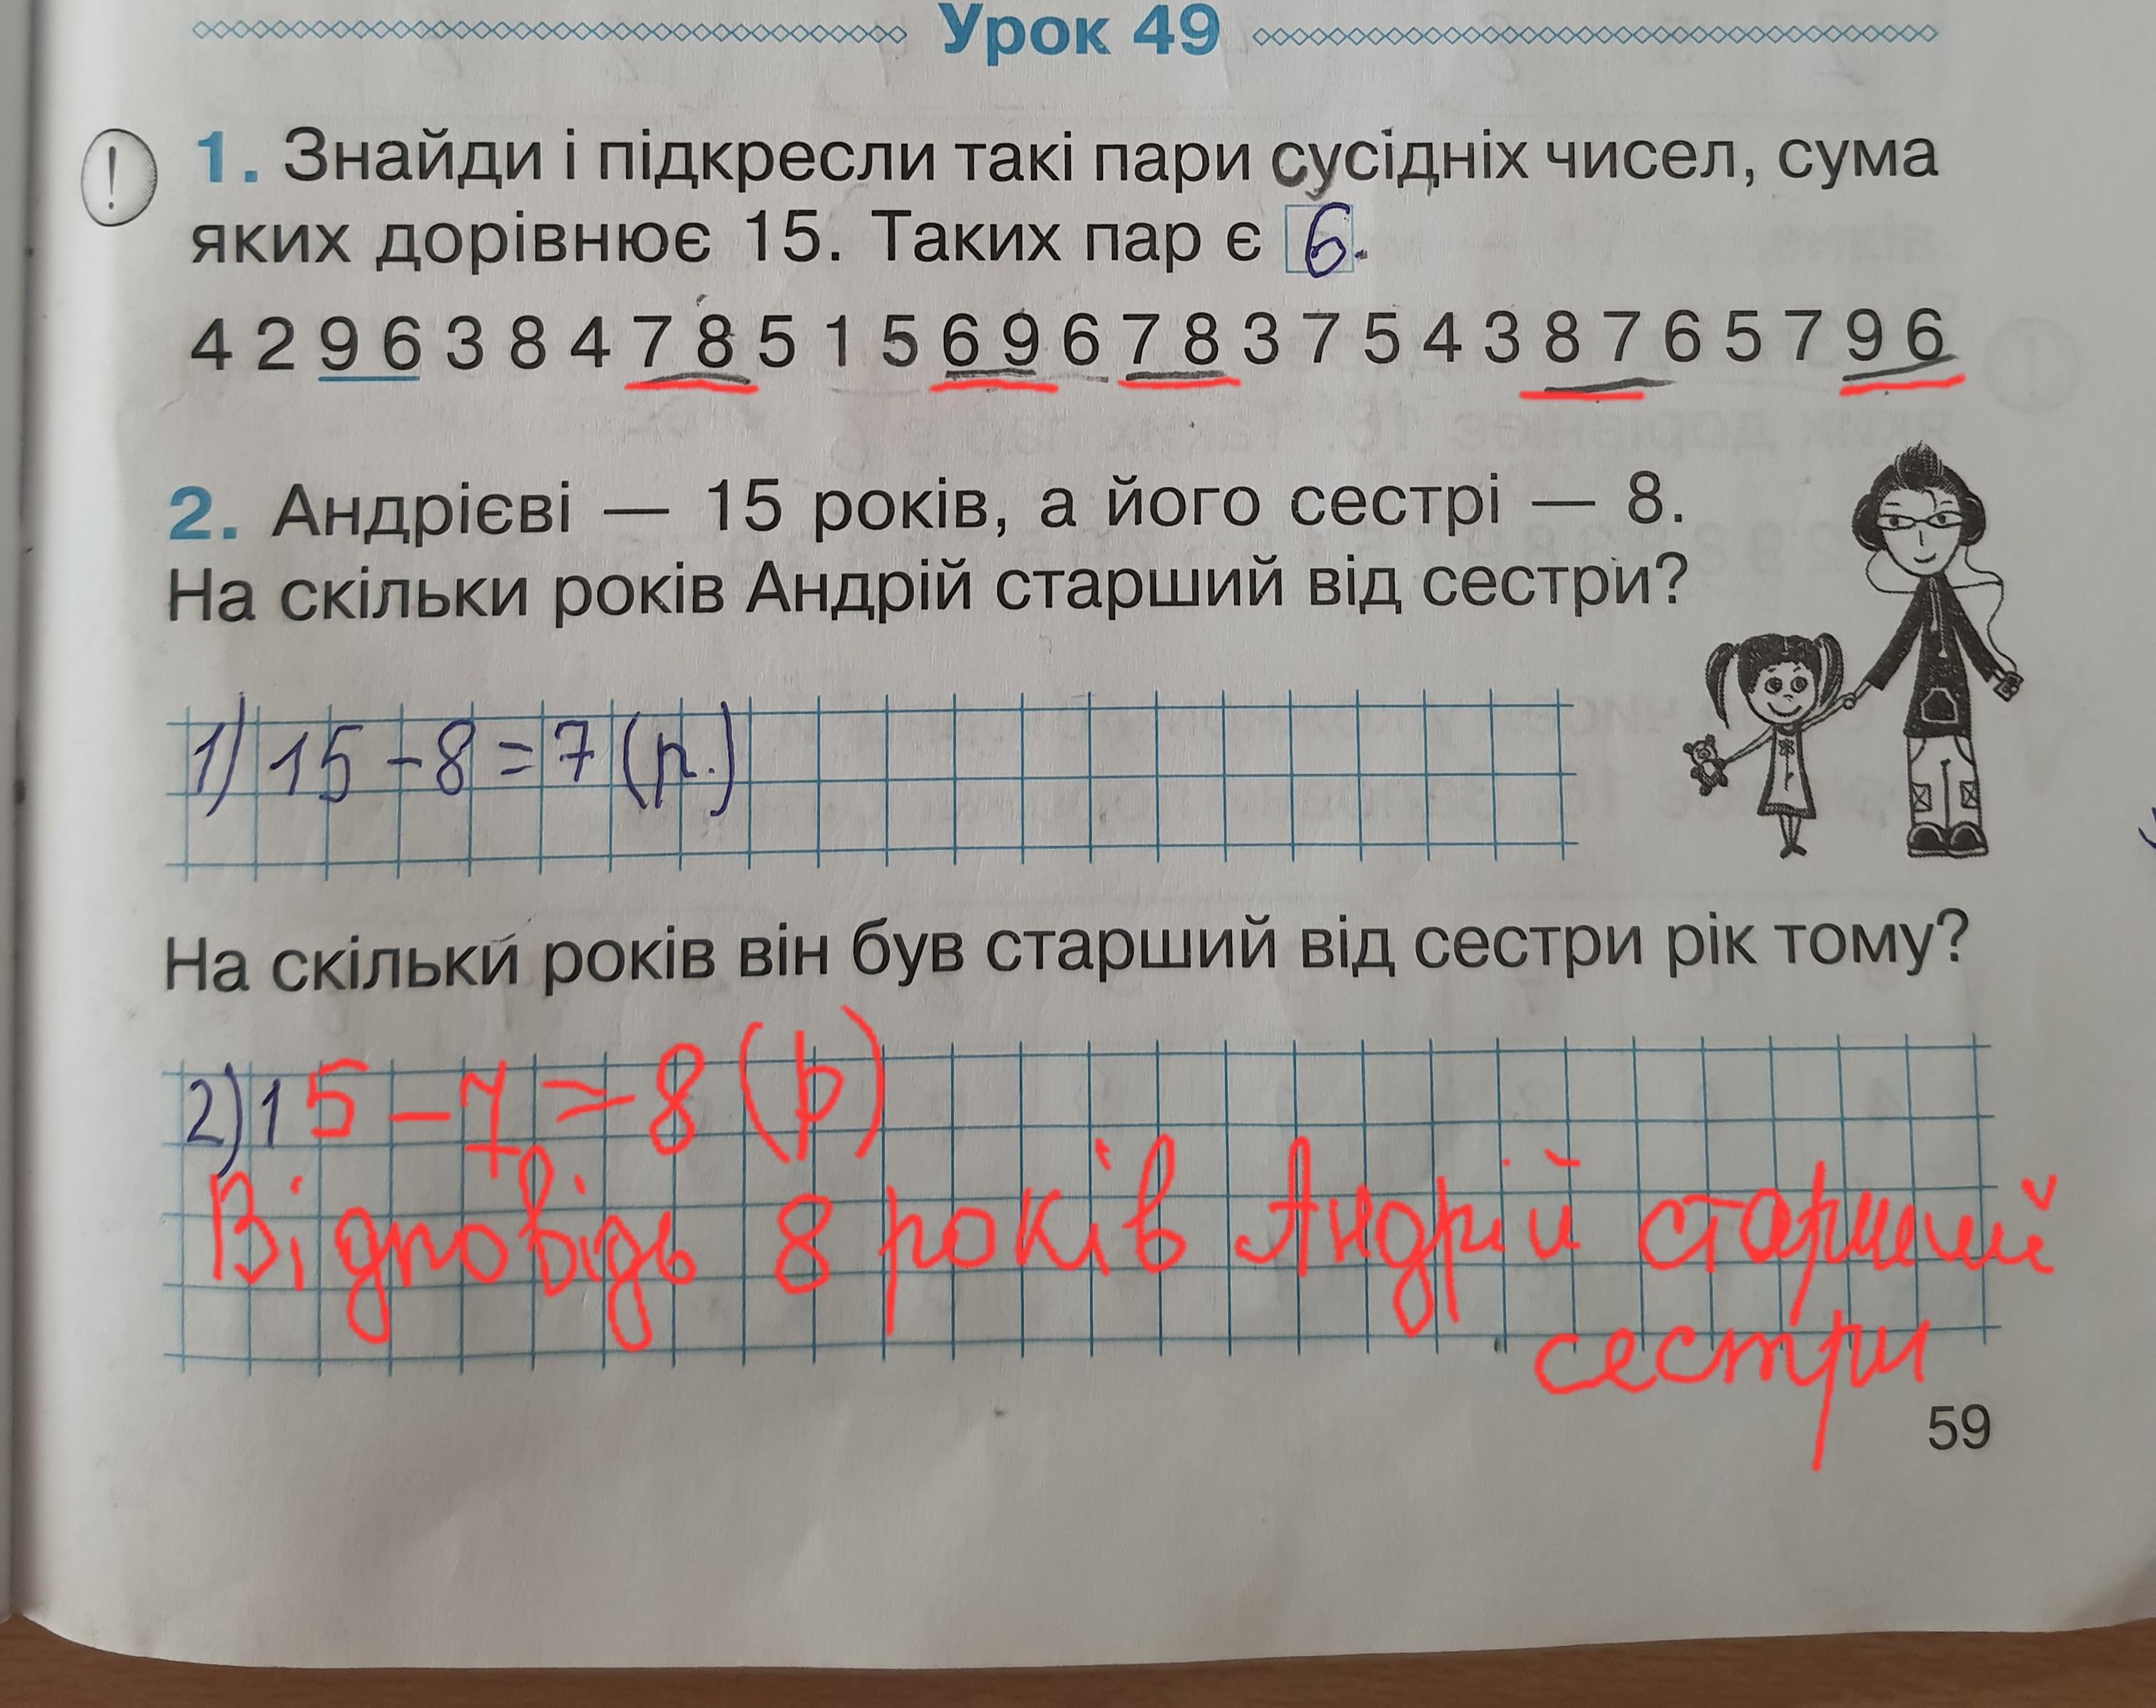 Урок 49
! 1. Знайди і підкресли такі пари сусідніх чисел, сума
яких дорівнює 15. Таких пар є 6.
4 2 9 6 3 8 4 7 8 5 1 5 6 9 6 7 8 3 7 5 4 3 8 7 6 5 7 9 6
2. Андрієві — 15 років, а його сестрі — 8.
На скільки років Андрій старший від сестри?
1) 15 - 8 = 7 (р.)
На скільки років він був старший від сестри рік тому?
2) 15 - 7 = 8 (р)
Відповідь 8 років Андрій старший
сестри
59